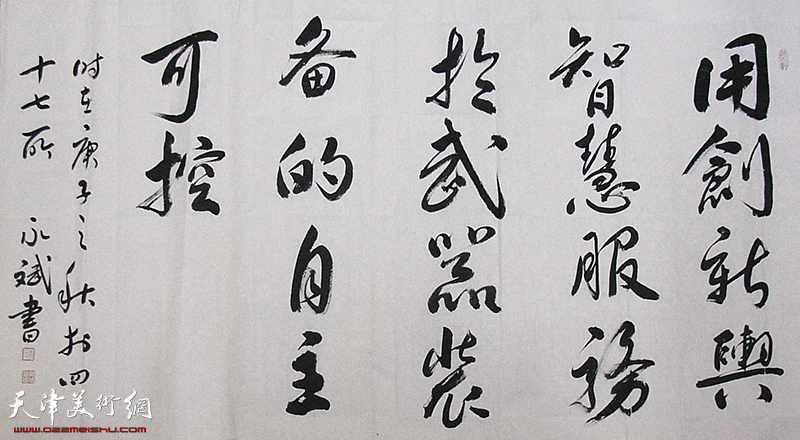 用創新與
智慧服務
於武器装
备的自主
可控
时在庚子之秋於四
十七所
永斌書
天津美術網
www.022meishu.com